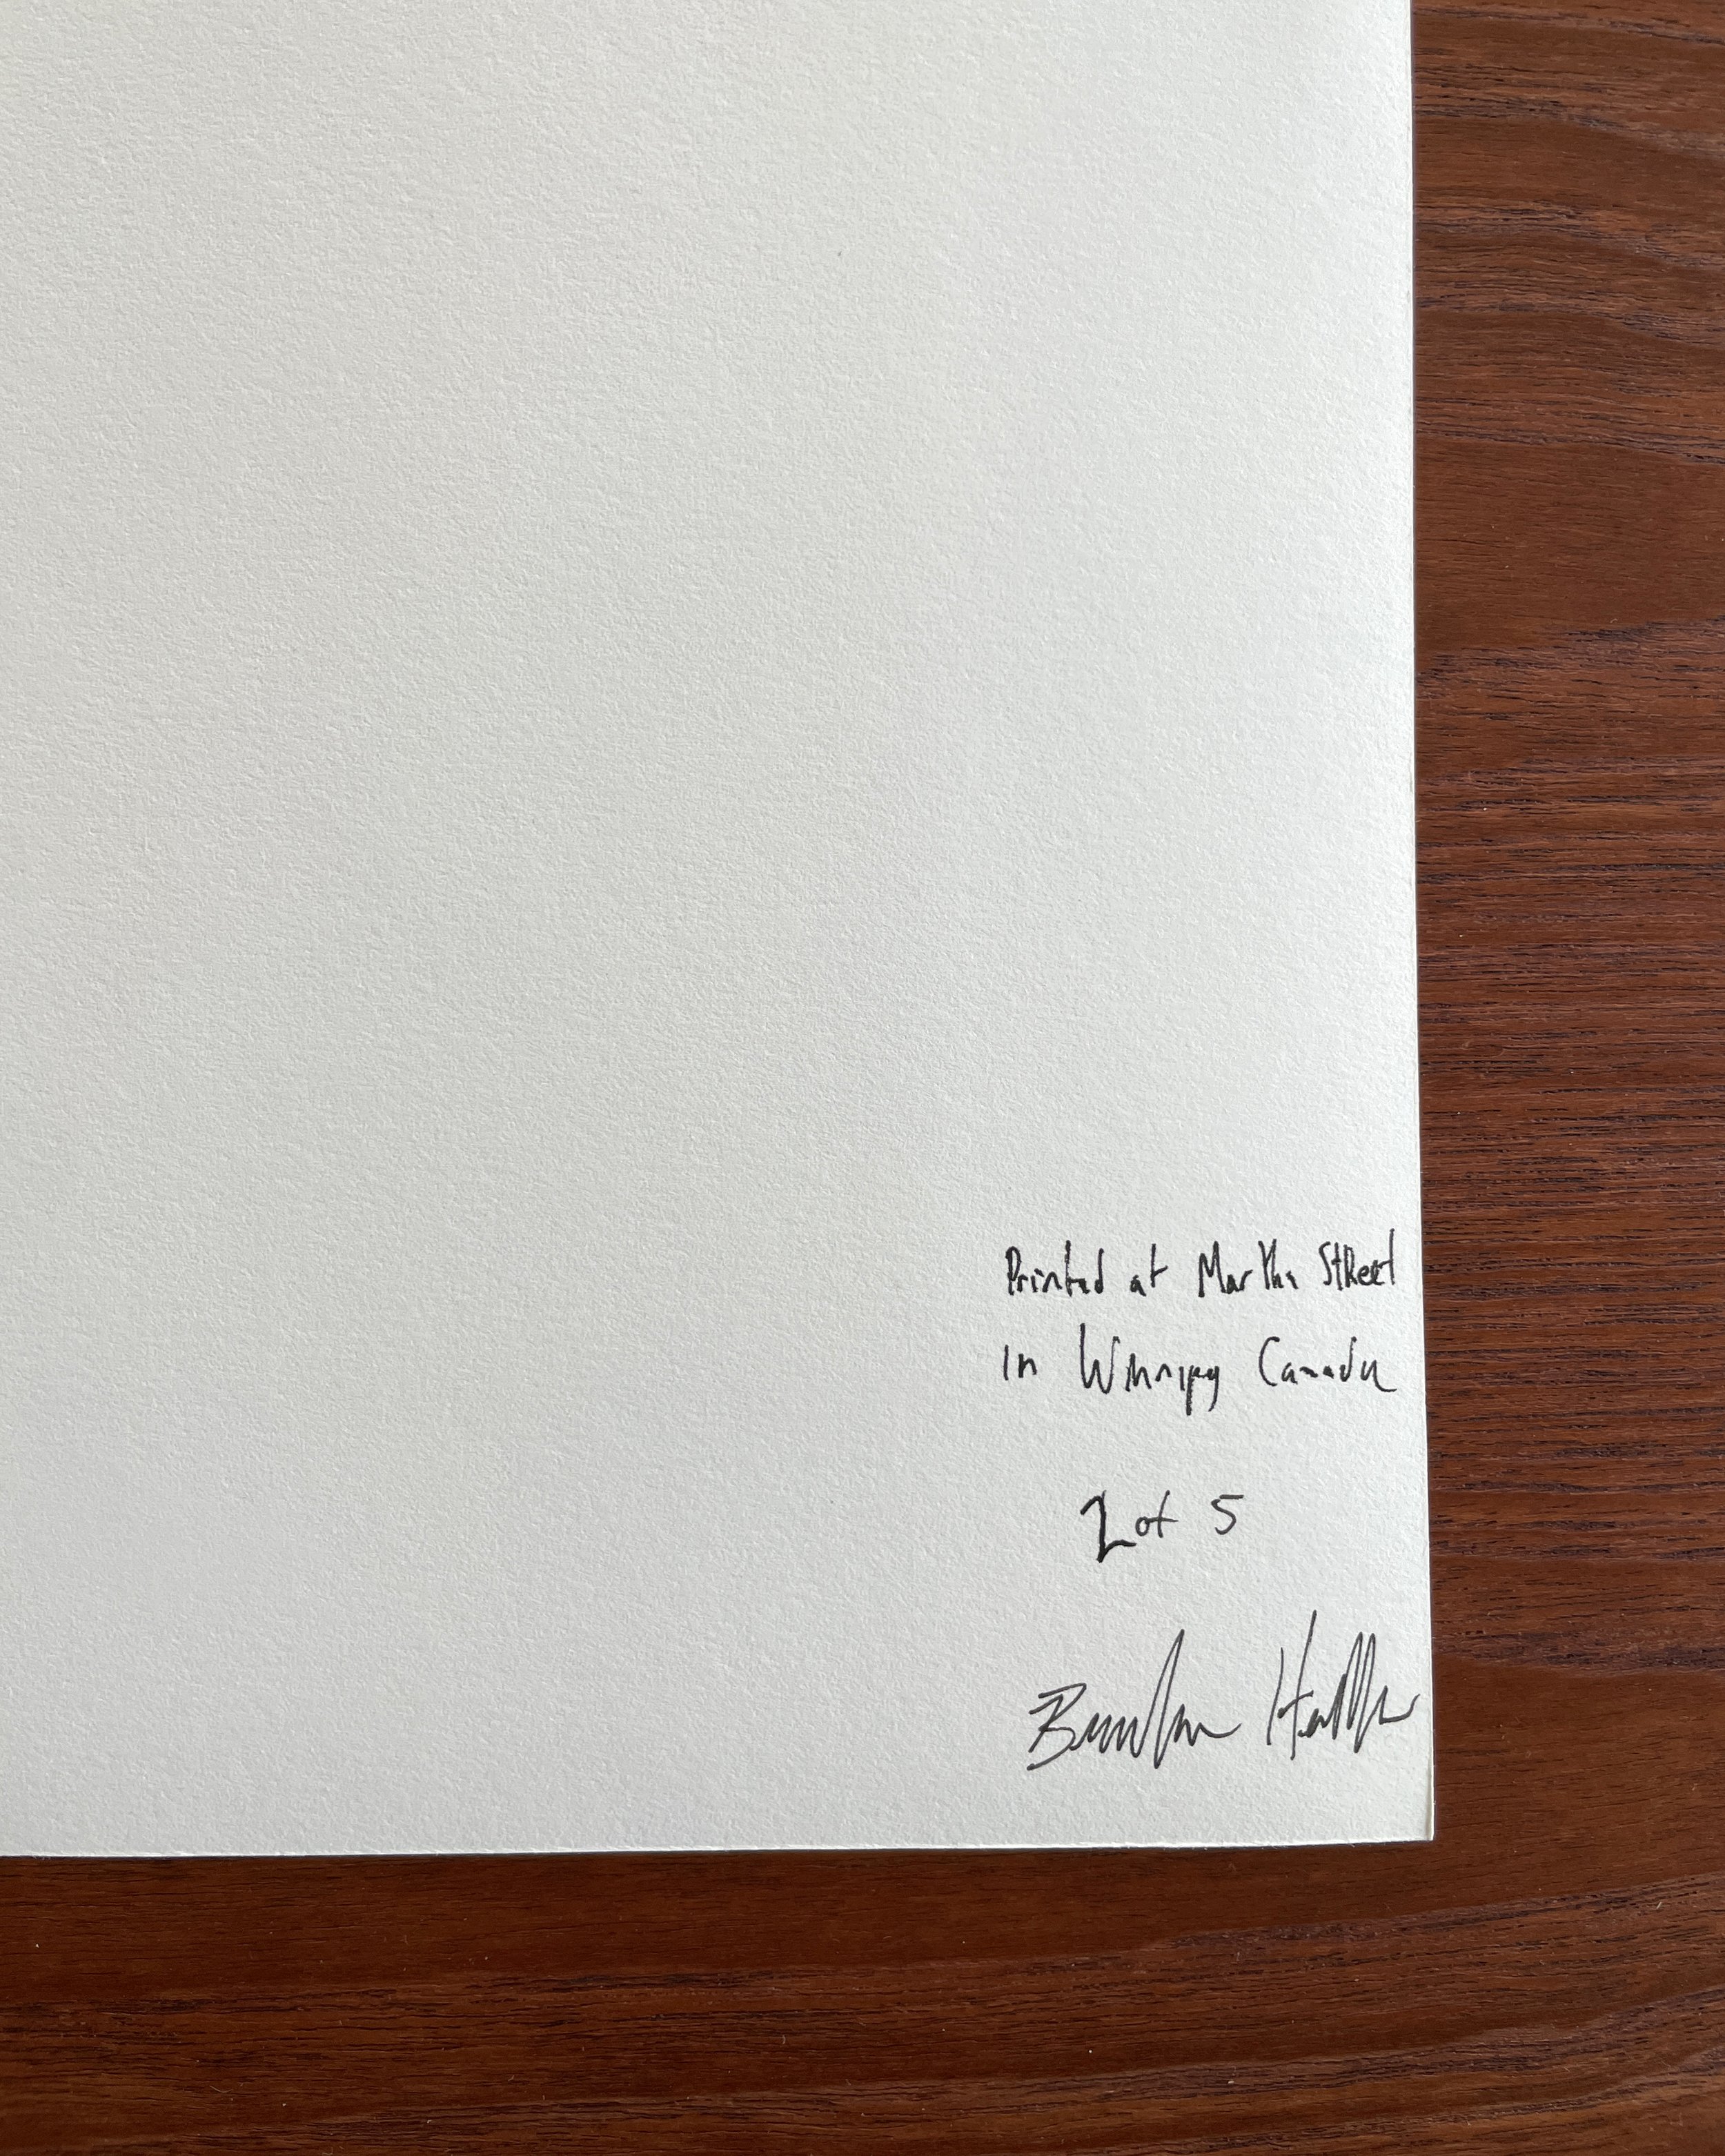 Printed at Martha Street
in Winnipeg Canada
2 of 5